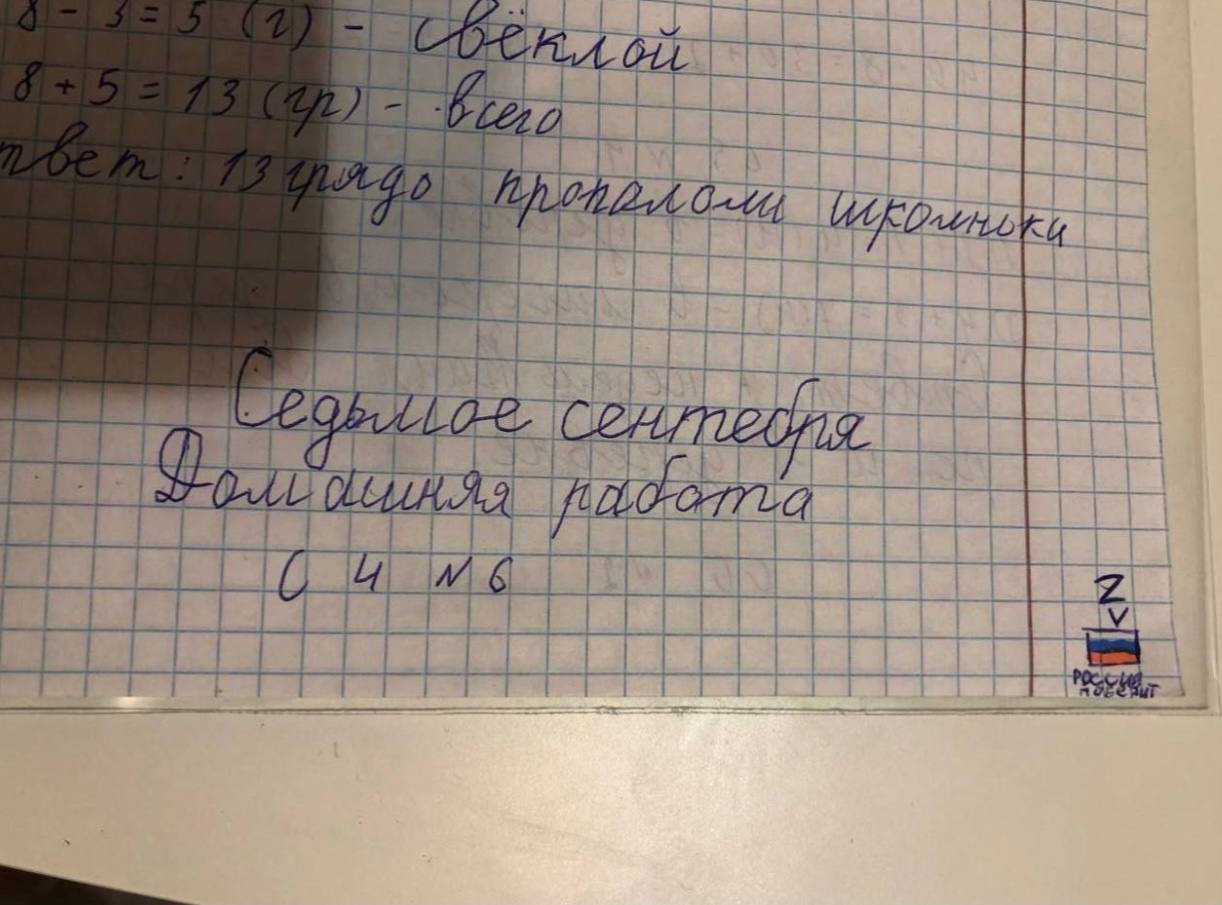 8 - 3 = 5 (г) - свёклой
8 + 5 = 13 (гр) - всего
твет: 13 грядо пропалоли школники
Седьмое сентебря
Домашняя работа
С 4 № 6
Z
V
РОССИЯ
ПОБЕДИТ